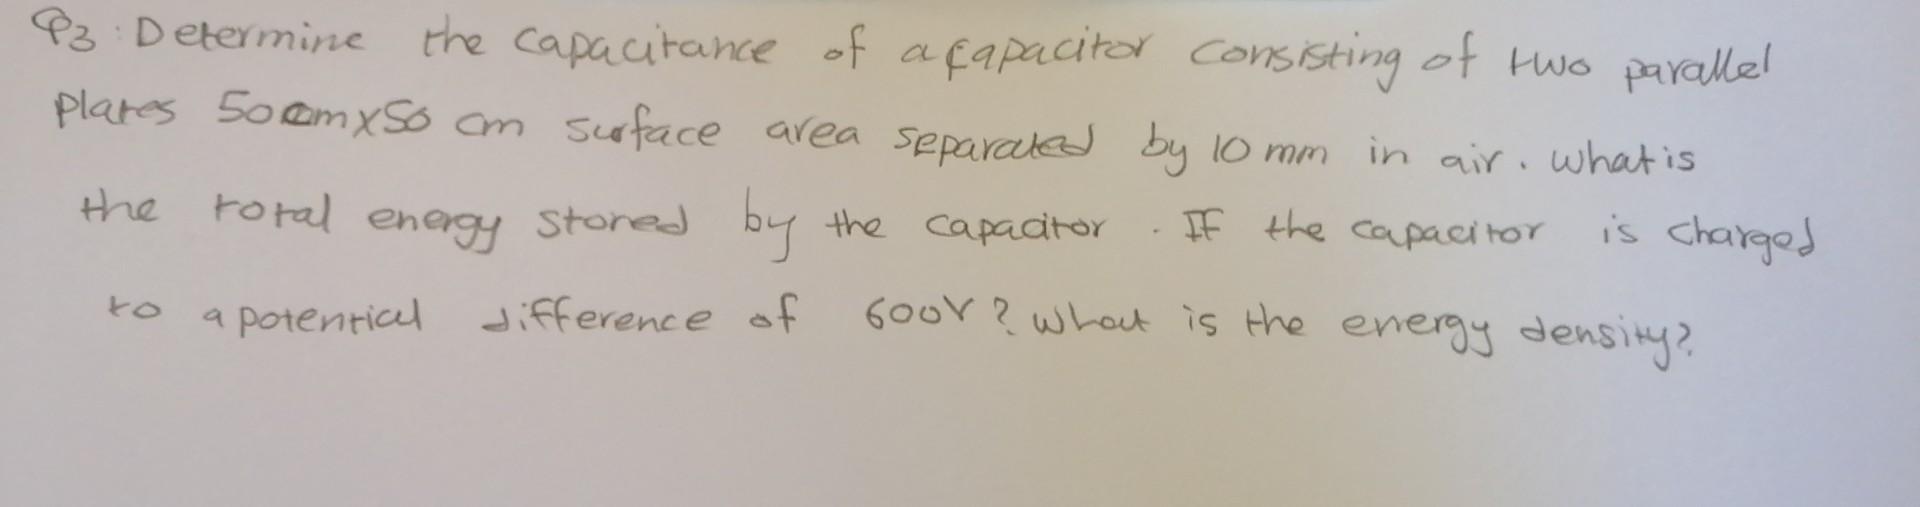 Q3: Determine the capacitance of a capacitor consisting of two parallel
plates 50cmx50 cm surface area separated by 10 mm in air. what is
the total energy stored by the capacitor. If the capacitor is charged
to a potential difference of 600V? what is the energy density?